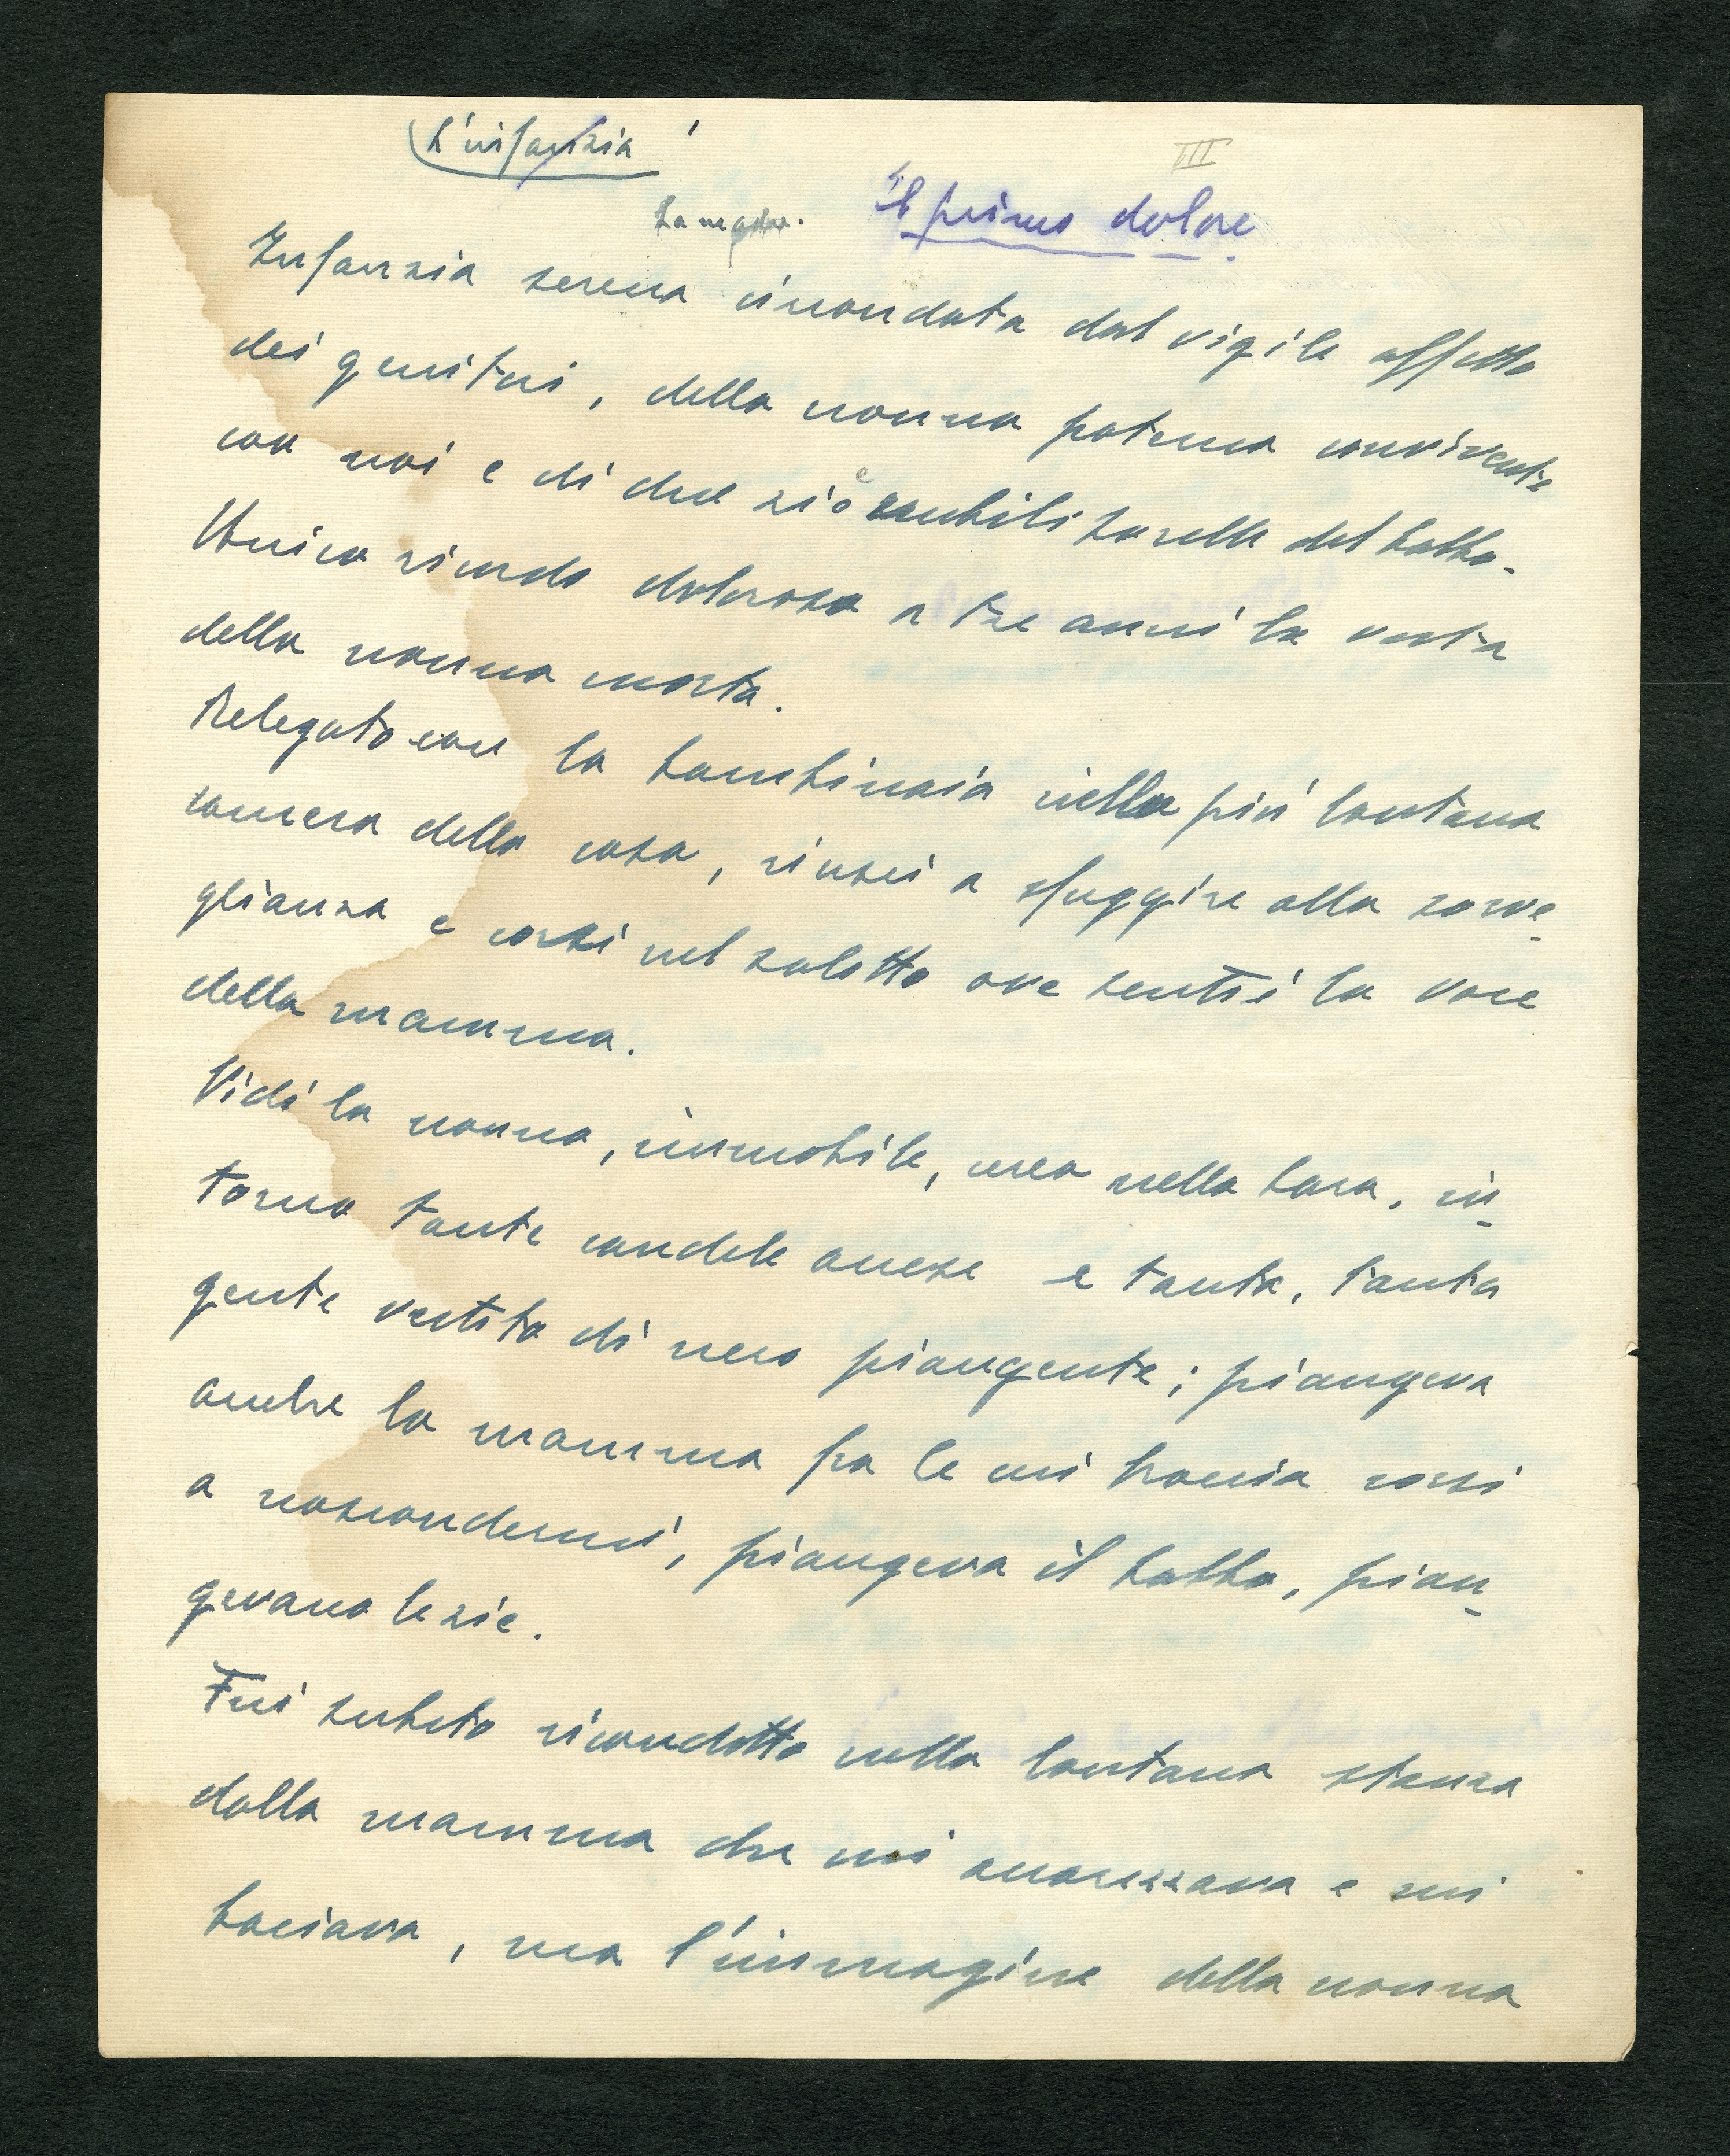 L'infanzia
III
Il primo dolore
Infanzia serena circondata dal vigile affetto
dei genitori, della nonna paterna convivente
con noi e di due zie nubili sorelle del babbo.
Unico ricordo doloroso a tre anni la vista
della nonna morta.
Relegato con la bambinaia nella più lontana
camera della casa, riuscii a sfuggire alla sorve_
glianza e corsi nel salotto ove sentii la voce
della mamma.
Vidi la nonna, immobile, cerea nella bara, in_
torno tante candele accese e tanta, tanta
gente vestita di nero piangente; piangeva
anche la mamma fra le cui braccia corsi
a nascondermi, piangeva il babbo, pian_
gevano le zie.
Fui subito ricondotto nella lontana stanza
dalla mamma che mi accarezzava e mi
baciava, ma l'immagine della nonna